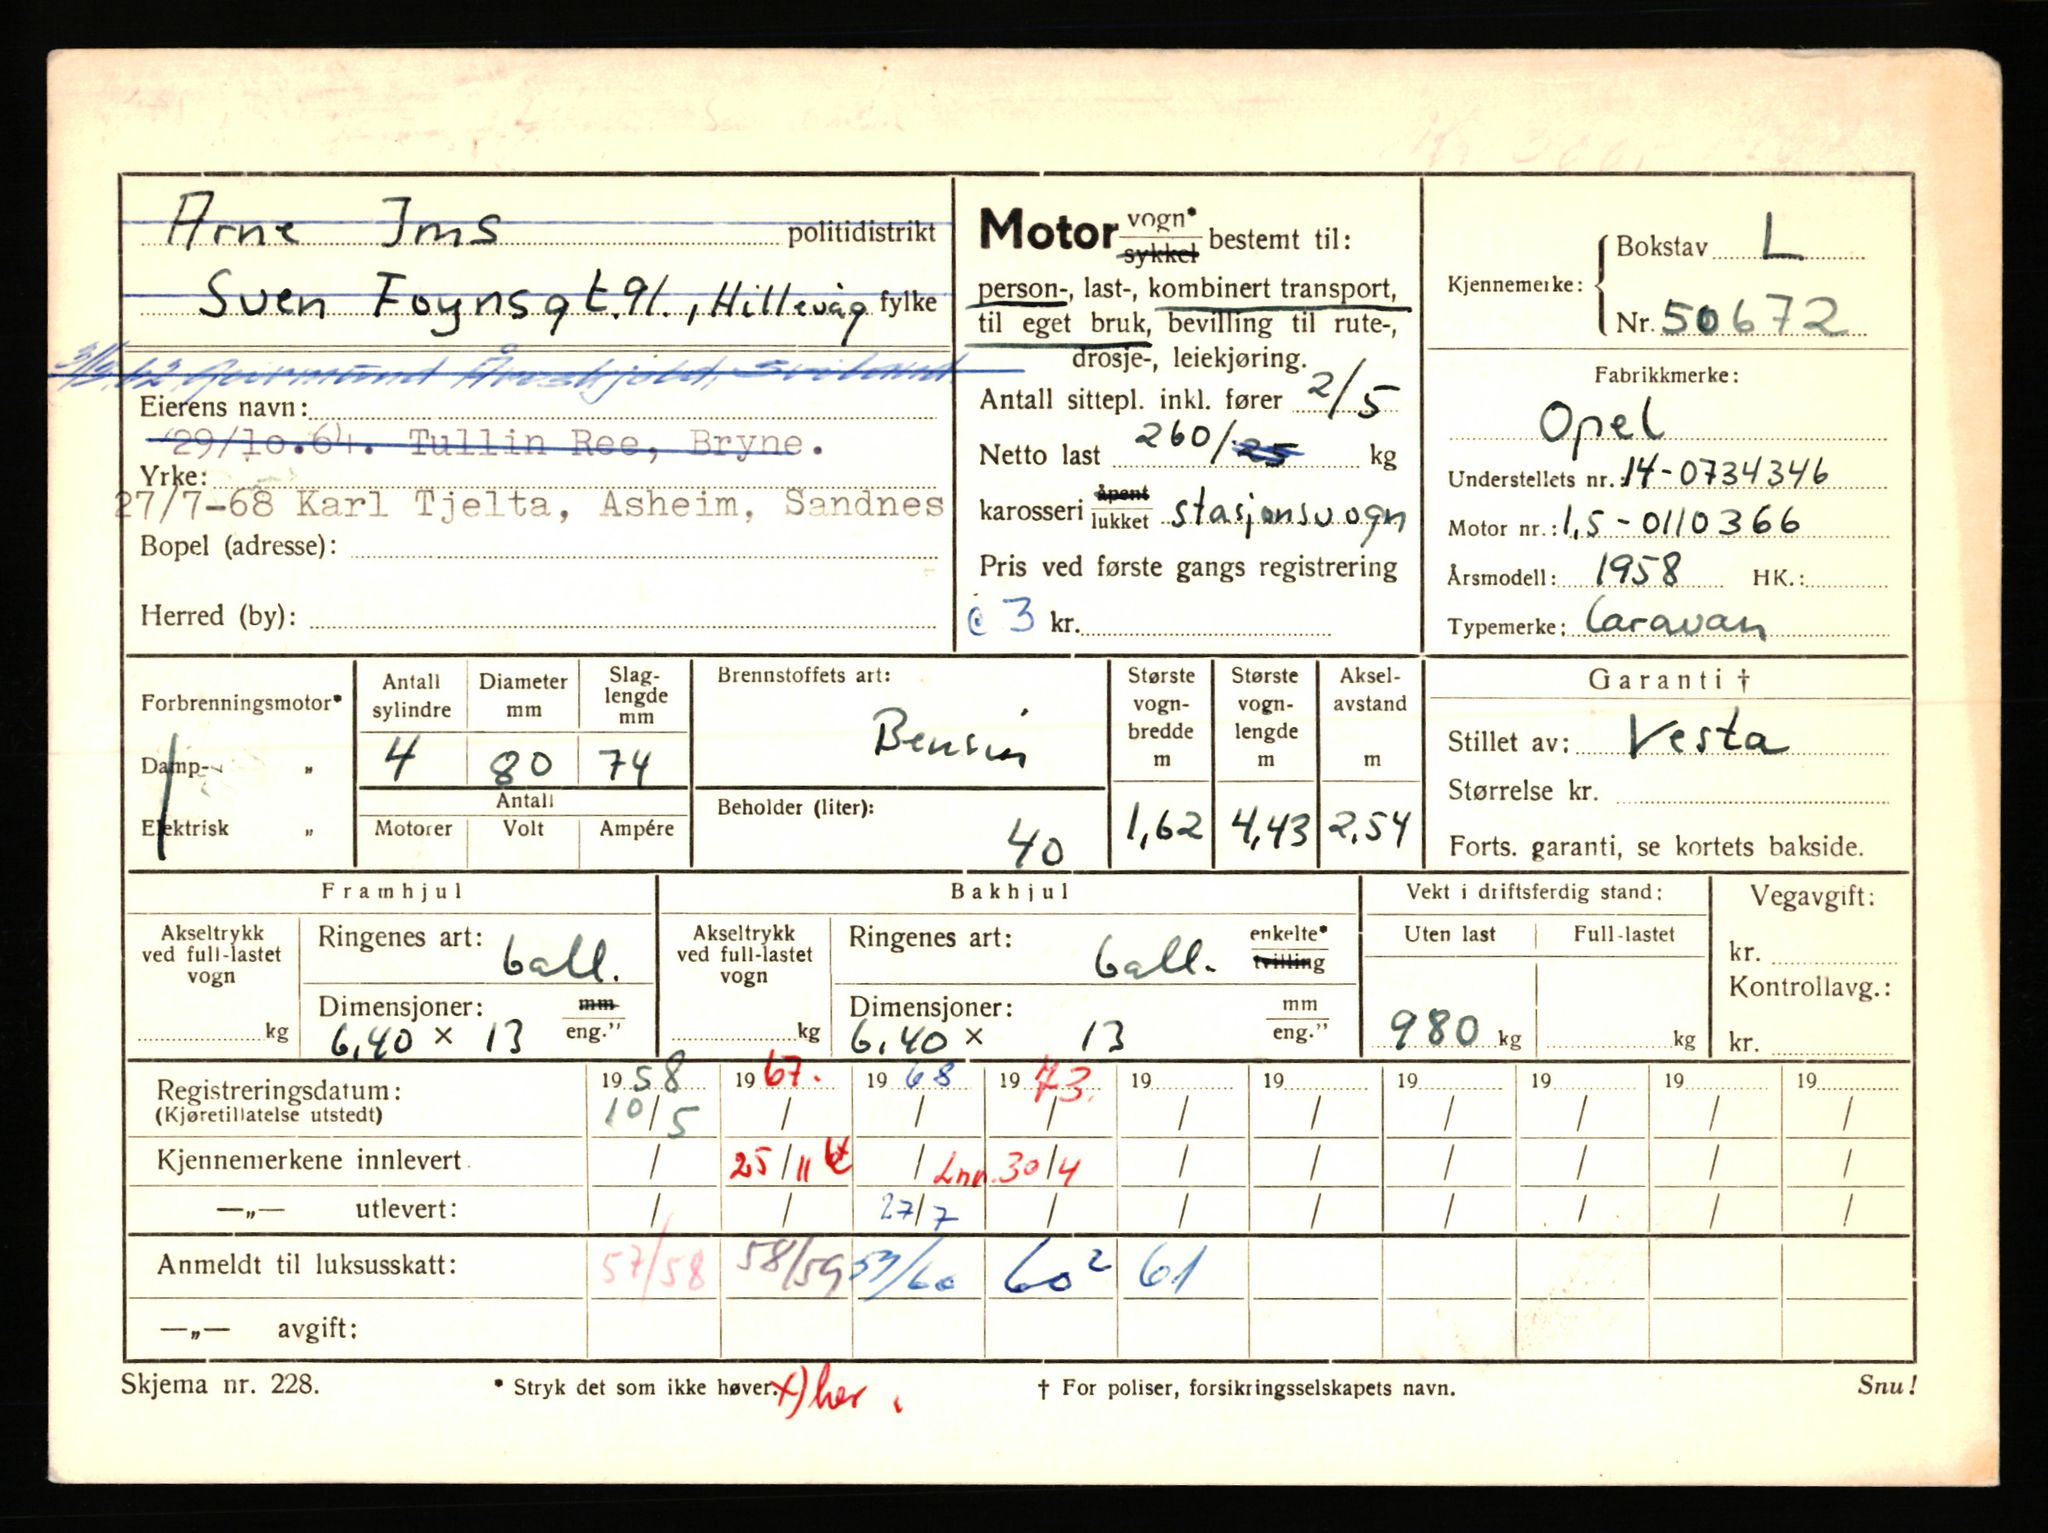 Arne Ims politidistrikt
Sven Foynsgt. 91., Hillevåg fylke
Eierens navn:
29/10.64. Tullin Ree, Bryne.
Yrke:
27/7-68 Karl Tjelta, Asheim, Sandnes
Bopel (adresse):
Herred (by):
Motor vogn* sykkel bestemt til:
person-, last-, kombinert transport,
til eget bruk, bevilling til rute-,
drosje-, leiekjøring.
Antall sittepl. inkl. fører 2/5
Netto last 260/25 kg
karosseri åpent lukket stasjonsvogn
Pris ved første gangs registrering
c 3 kr.
Kjennemerke: Bokstav L
Nr. 50672
Fabrikkmerke:
Opel
Understellets nr.: 14-0734346
Motor nr.: 1,5-0110366
Årsmodell: 1958 HK.:
Typemerke: Caravan
Forbrenningsmotor*
Damp- „
Elektrisk „
Antall sylindre 4
Diameter mm 80
Slag-lengde mm 74
Antall
Motorer Volt Ampére
Brennstoffets art:
Bensin
Beholder (liter):
40
Største vogn-bredde m 1,62
Største vogn-lengde m 4,43
Aksel-avstand m 2,54
Garanti †
Stillet av: Vesta
Størrelse kr.
Forts. garanti, se kortets bakside.
Framhjul
Akseltrykk ved full-lastet vogn kg
Ringenes art: ball.
Dimensjoner: mm eng."
6,40 × 13
Bakhjul
Akseltrykk ved full-lastet vogn kg
Ringenes art: ball. enkelte* tvilling
Dimensjoner: mm eng."
6,40 × 13
Vekt i driftsferdig stand:
Uten last Full-lastet
980 kg kg
Vegavgift:
kr.
Kontrollavg.:
kr.
Registreringsdatum: 1958 1967. 1968 1973. 19 19 19 19 19 19
(Kjøretillatelse utstedt) 10/5 / / / / / / / / /
Kjennemerkene innlevert / 25/11 / Lnr. 30/4 / / / / / /
—„— utlevert: / / 27/7 / / / / / / /
Anmeldt til luksusskatt: 57/58 58/59 59/60 60² 61
—„— avgift:
Skjema nr. 228.
* Stryk det som ikke høver. x) her
† For poliser, forsikringsselskapets navn.
Snu!